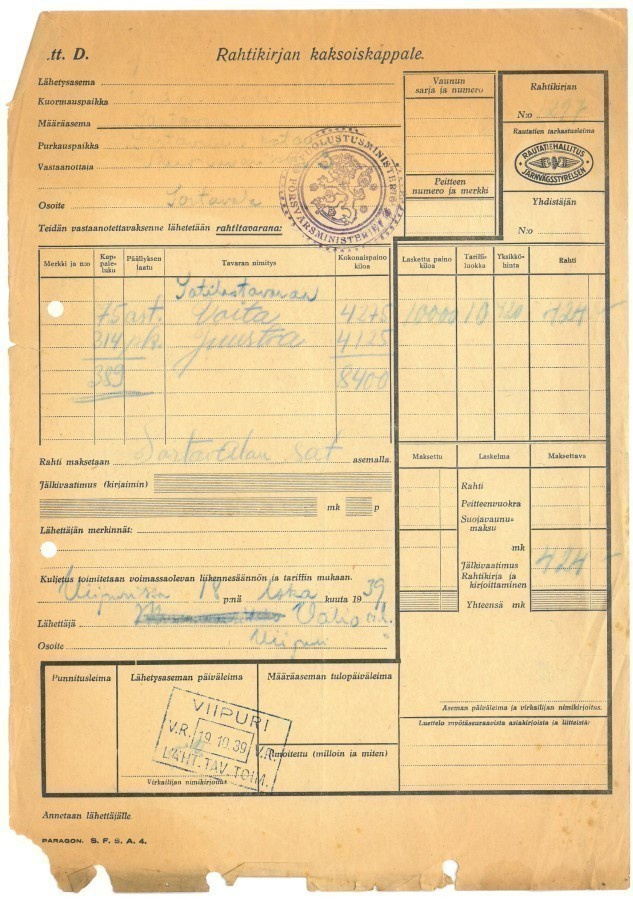 .tt. D.
Rahtikirjan kaksoiskappale.
Lähetysasema
Kuormauspaikka
Määräasema
Purkauspaikka
Vastaanottaja
Osoite Sortavala
Teidän vastaanotettavaksenne lähetetään rahtitavarana:
Vaunun sarja ja numero
Peitteen numero ja merkki
Rahtikirjan
N:o
Rautatien tarkastusleima
RAUTATIEHALLITUS
JÄRNVÄGSSTYRELSEN
Yhdistäjän
N:o
PUOLUSTUSMINISTERIÖ
FÖRSVARSMINISTERIET
Merkki ja n:o Kappaleluku Päällyksen laatu Tavaran nimitys Kokonaispaino kiloa Laskettu paino kiloa Tariffiluokka Yksikköhinta Rahti
75 ast. Voita 4275 10000 10 420
314 Juustoa 4125
389 8400
Rahti maksetaan Sortavalan asemalla.
Jälkivaatimus (kirjaimin)
mk p
Lähettäjän merkinnät:
Maksettu Laskelma Maksettava
Rahti
Peitteenvuokra
Suojavaunumaksu
mk
Jälkivaatimus
Rahtikirja ja kirjoittaminen
Yhteensä mk
Kuljetus toimitetaan voimassaolevan liikennesäännön ja tariffin mukaan.
Viipurissa 18 p:nä loka kuuta 1939
Lähettäjä Valio
Osoite Viipuri
Punnitusleima
Lähetysaseman päiväleima
Määräaseman tulopäiväleima
VIIPURI
V.R. 19.10.39 V.R.
LÄHT. TAV. TOIM.
Virkailijan nimikirjoitus
Ilmoitettu (milloin ja miten)
Aseman päiväleima ja virkailijan nimikirjoitus.
Luettelo myötäseuraavista asiakirjoista ja liitteistä:
Annetaan lähettäjälle.
PARAGON. S. F. S. A. 4.